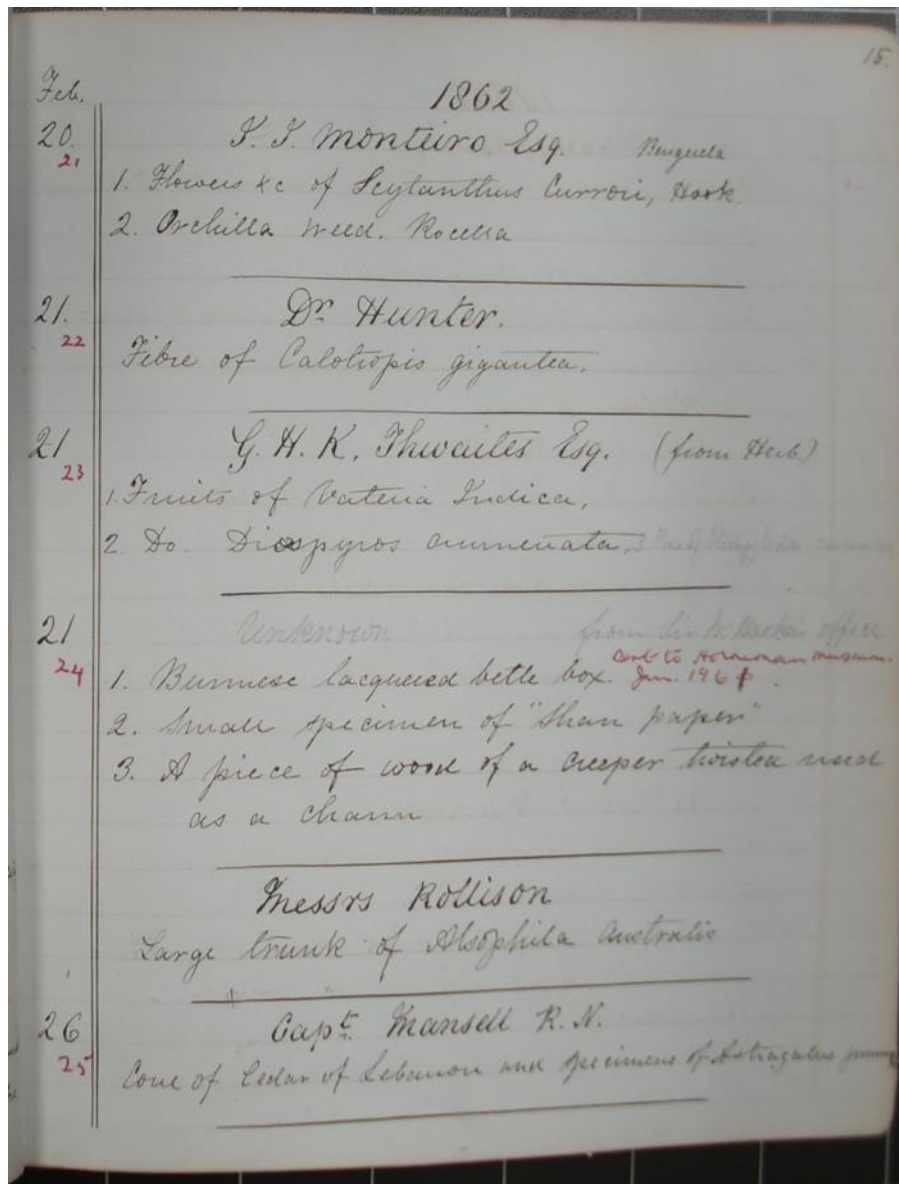 15.
Feb. 1862
20. J. J. Monteiro Esq. Benguela
21
1. Flowers &c of Scytanthus Currori, Hook
2. Orchilla Weed. Rocella
21. Dr. Hunter.
22
Fibre of Calotropis gigantea.
21 G. H. K. Thwaites Esq. (from Herb.)
23
1. Fruits of Vateria Indica,
2. Do. Diospyros
21 Unknown from Sir W. Hooker's office
24
1. Burmese lacquered betle box. Sent to Horniman Museum.
Jan. 196
2. Small specimen of "Shan paper"
3. A piece of wood of a creeper twisted used
as a charm
Messrs Rollison
Large trunk of Alsophila Australis
26 Capt. Mansell R. N.
25
Cone of Cedar of Lebanon and specimens of Astragalus